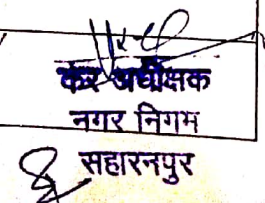 कर अधीक्षक
नगर निगम
सहारनपुर